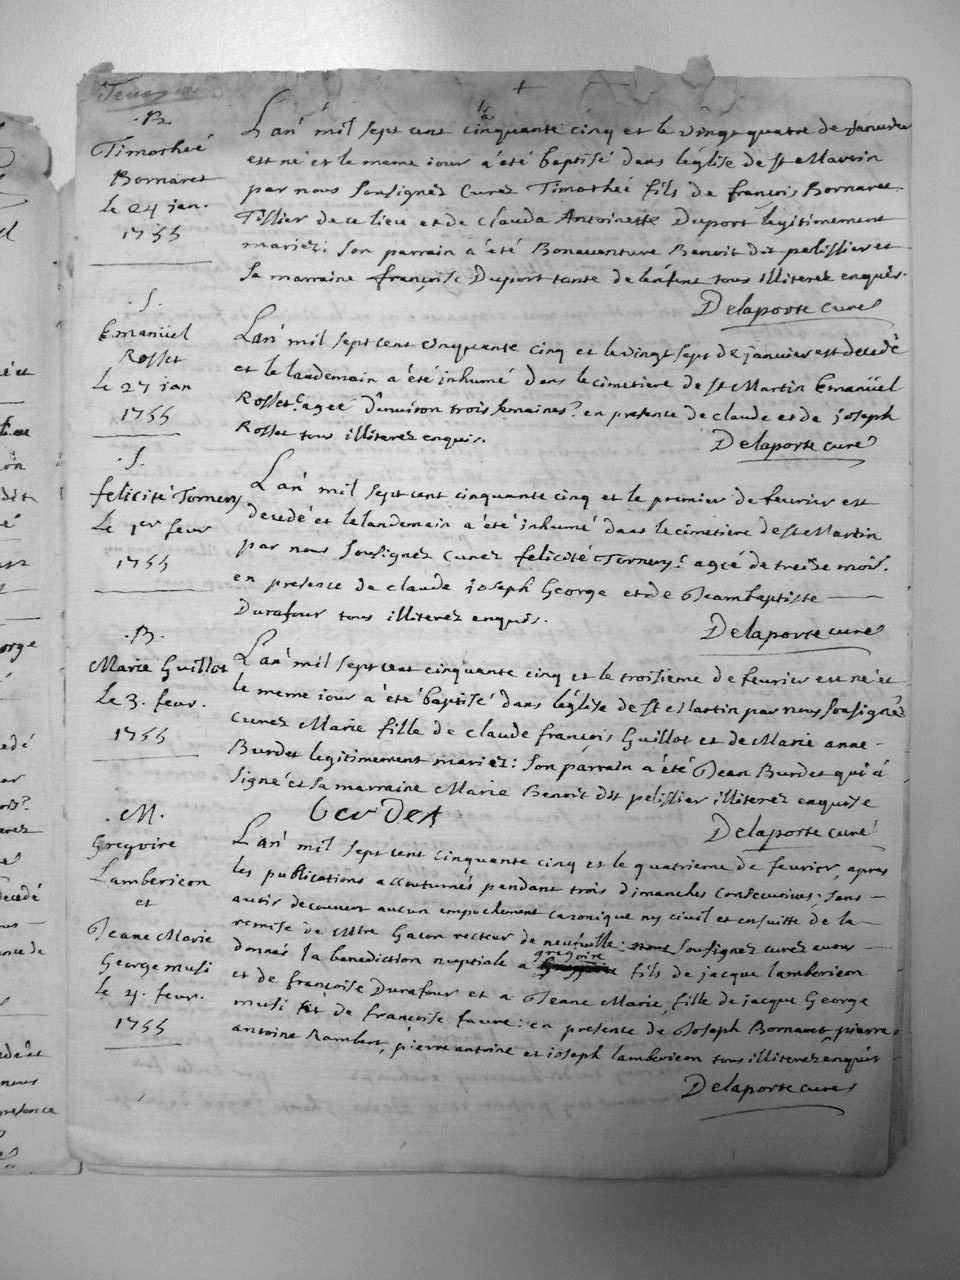 .B.
Timotheé
Bornaret
Le 24 jan.
1755
L'an mil sept cent cinquante cinq et le vingt quatre de Janvier
est né et le meme iour a été baptisé dans leglise de st Martin
par nous sousignez curez Timotheé fils de françois Bornaret
Tissier de ce lieu et de Clauda Antoinette Duport legitimement
mariez: son parrain a été Bonaventure Benoit dit pelissier et
sa marraine françoise Duport tante de lenfent tous illiterez enquis.
Delaporte curé
.S.
Emanüel
Rosset
Le 27 jan
1755
Lan mil sept cent cinquante cinq et le vingt sept de janvier est decedé
et le landemain a été inhumé dans le cimetiere de st Martin Emanüel
Rosset ageé d'environ trois semaines en presence de claude et de joseph
Rosset tous illiterez enquis.
Delaporte curé
.S.
felicité Tornery
Le 1er fevr
1755
Lan mil sept cent cinquante cinq et le premier de fevrier est
decedé et le landemain a été inhumé dans le cimetiere de st Martin
par nous sousignez curez felicité Tornery ageé de treize mois.
en presence de claude joseph George et de Jeambaptiste
Durafour tous illiterez enquis.
Delaporte curé
.B.
Marie Guillot
Le 3. fevr.
1755
Lan mil sept cent cinquante cinq et le troisieme de fevrier est né et
le meme iour a été baptisé dans léglise de st Martin par nous sousignés
curez Marie fille de claude françois Guillot et de Marie anne
Burdet legitimement mariez: son parrain a été Jean Burdet qui a
signé et sa marraine Marie Benoit dit pelissier illiterez enquise
burdet
Delaporte curé
.M.
Gregoire
Lambericon
et
Jeane Marie
George musi
le 4. fevr.
1755
Lan mil sept cent cinquante cinq et le quatrieme de fevrier, apres
les publications accoutumés pendant trois dimanches consecutives, sans
avoir decouvert aucun empechement canonique ny civil et ensuitte de la
remise de Mtre Gacon recteur de neuville: sousignez curez avons
donnés la benediction nuptiale a gregoire fils de jacque lambericon
et de françoise Durafour et a Jeane Marie, fille de jacque George
musi et de francoise faure: en presence de Joseph Bornaret pierre
antoine Rambert, pierre antoine et ioseph lambericon tous illiterez enquis
Delaporte curé